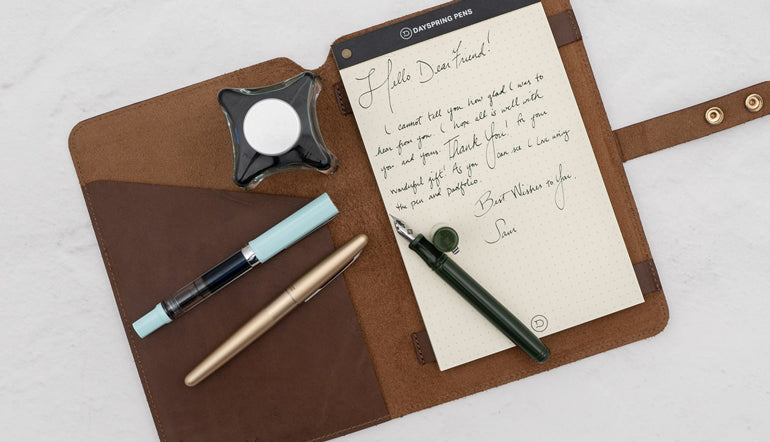 DAYSPRING PENS
Hello Dear Friend!
I cannot tell you how glad I was to
hear from you. I hope all is well with
you and yours. Thank You! for your
wonderful gift! As you can see I love using
the pen and padfolio.
Best Wishes to You,
Sam